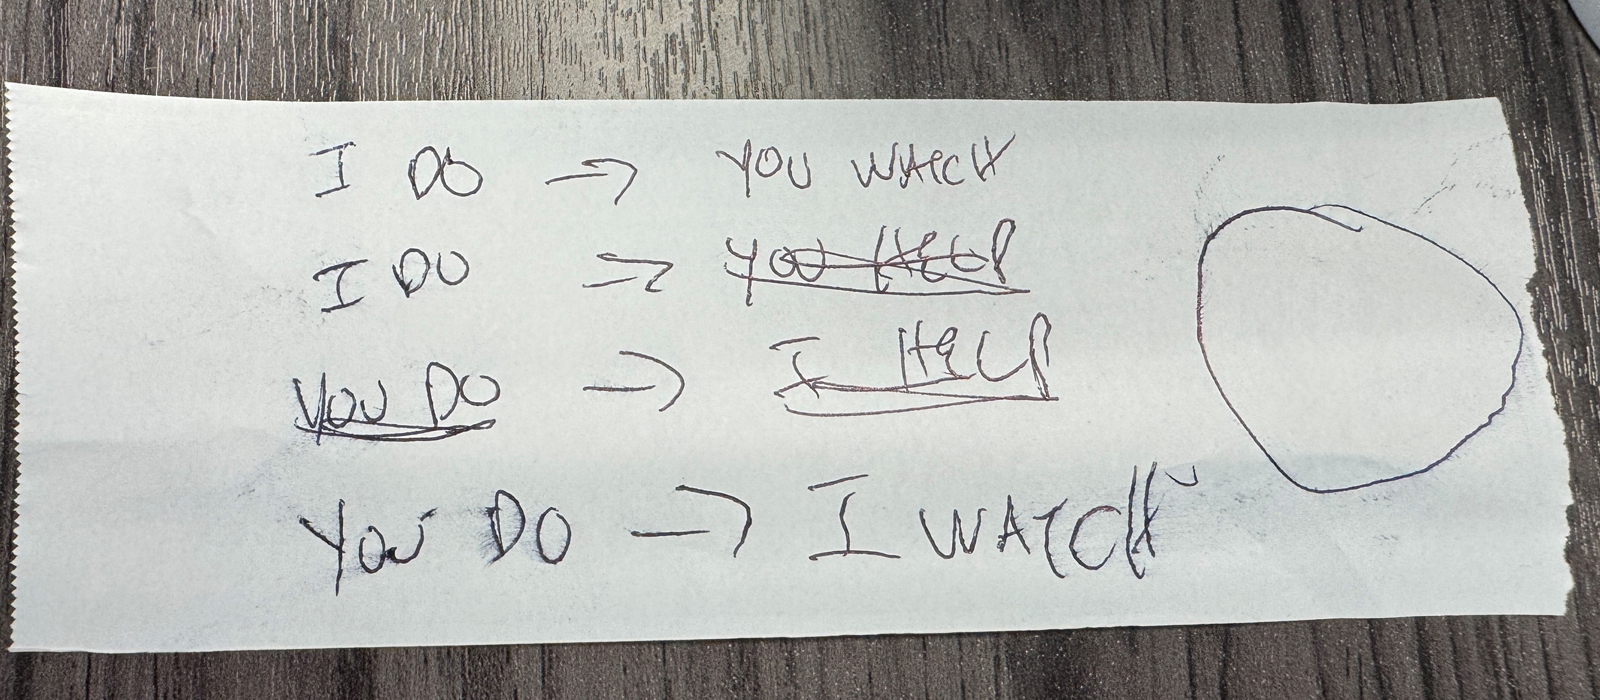 I DO → YOU WATCH
I DO → YOU HELP
YOU DO → I HELP
YOU DO → I WATCH